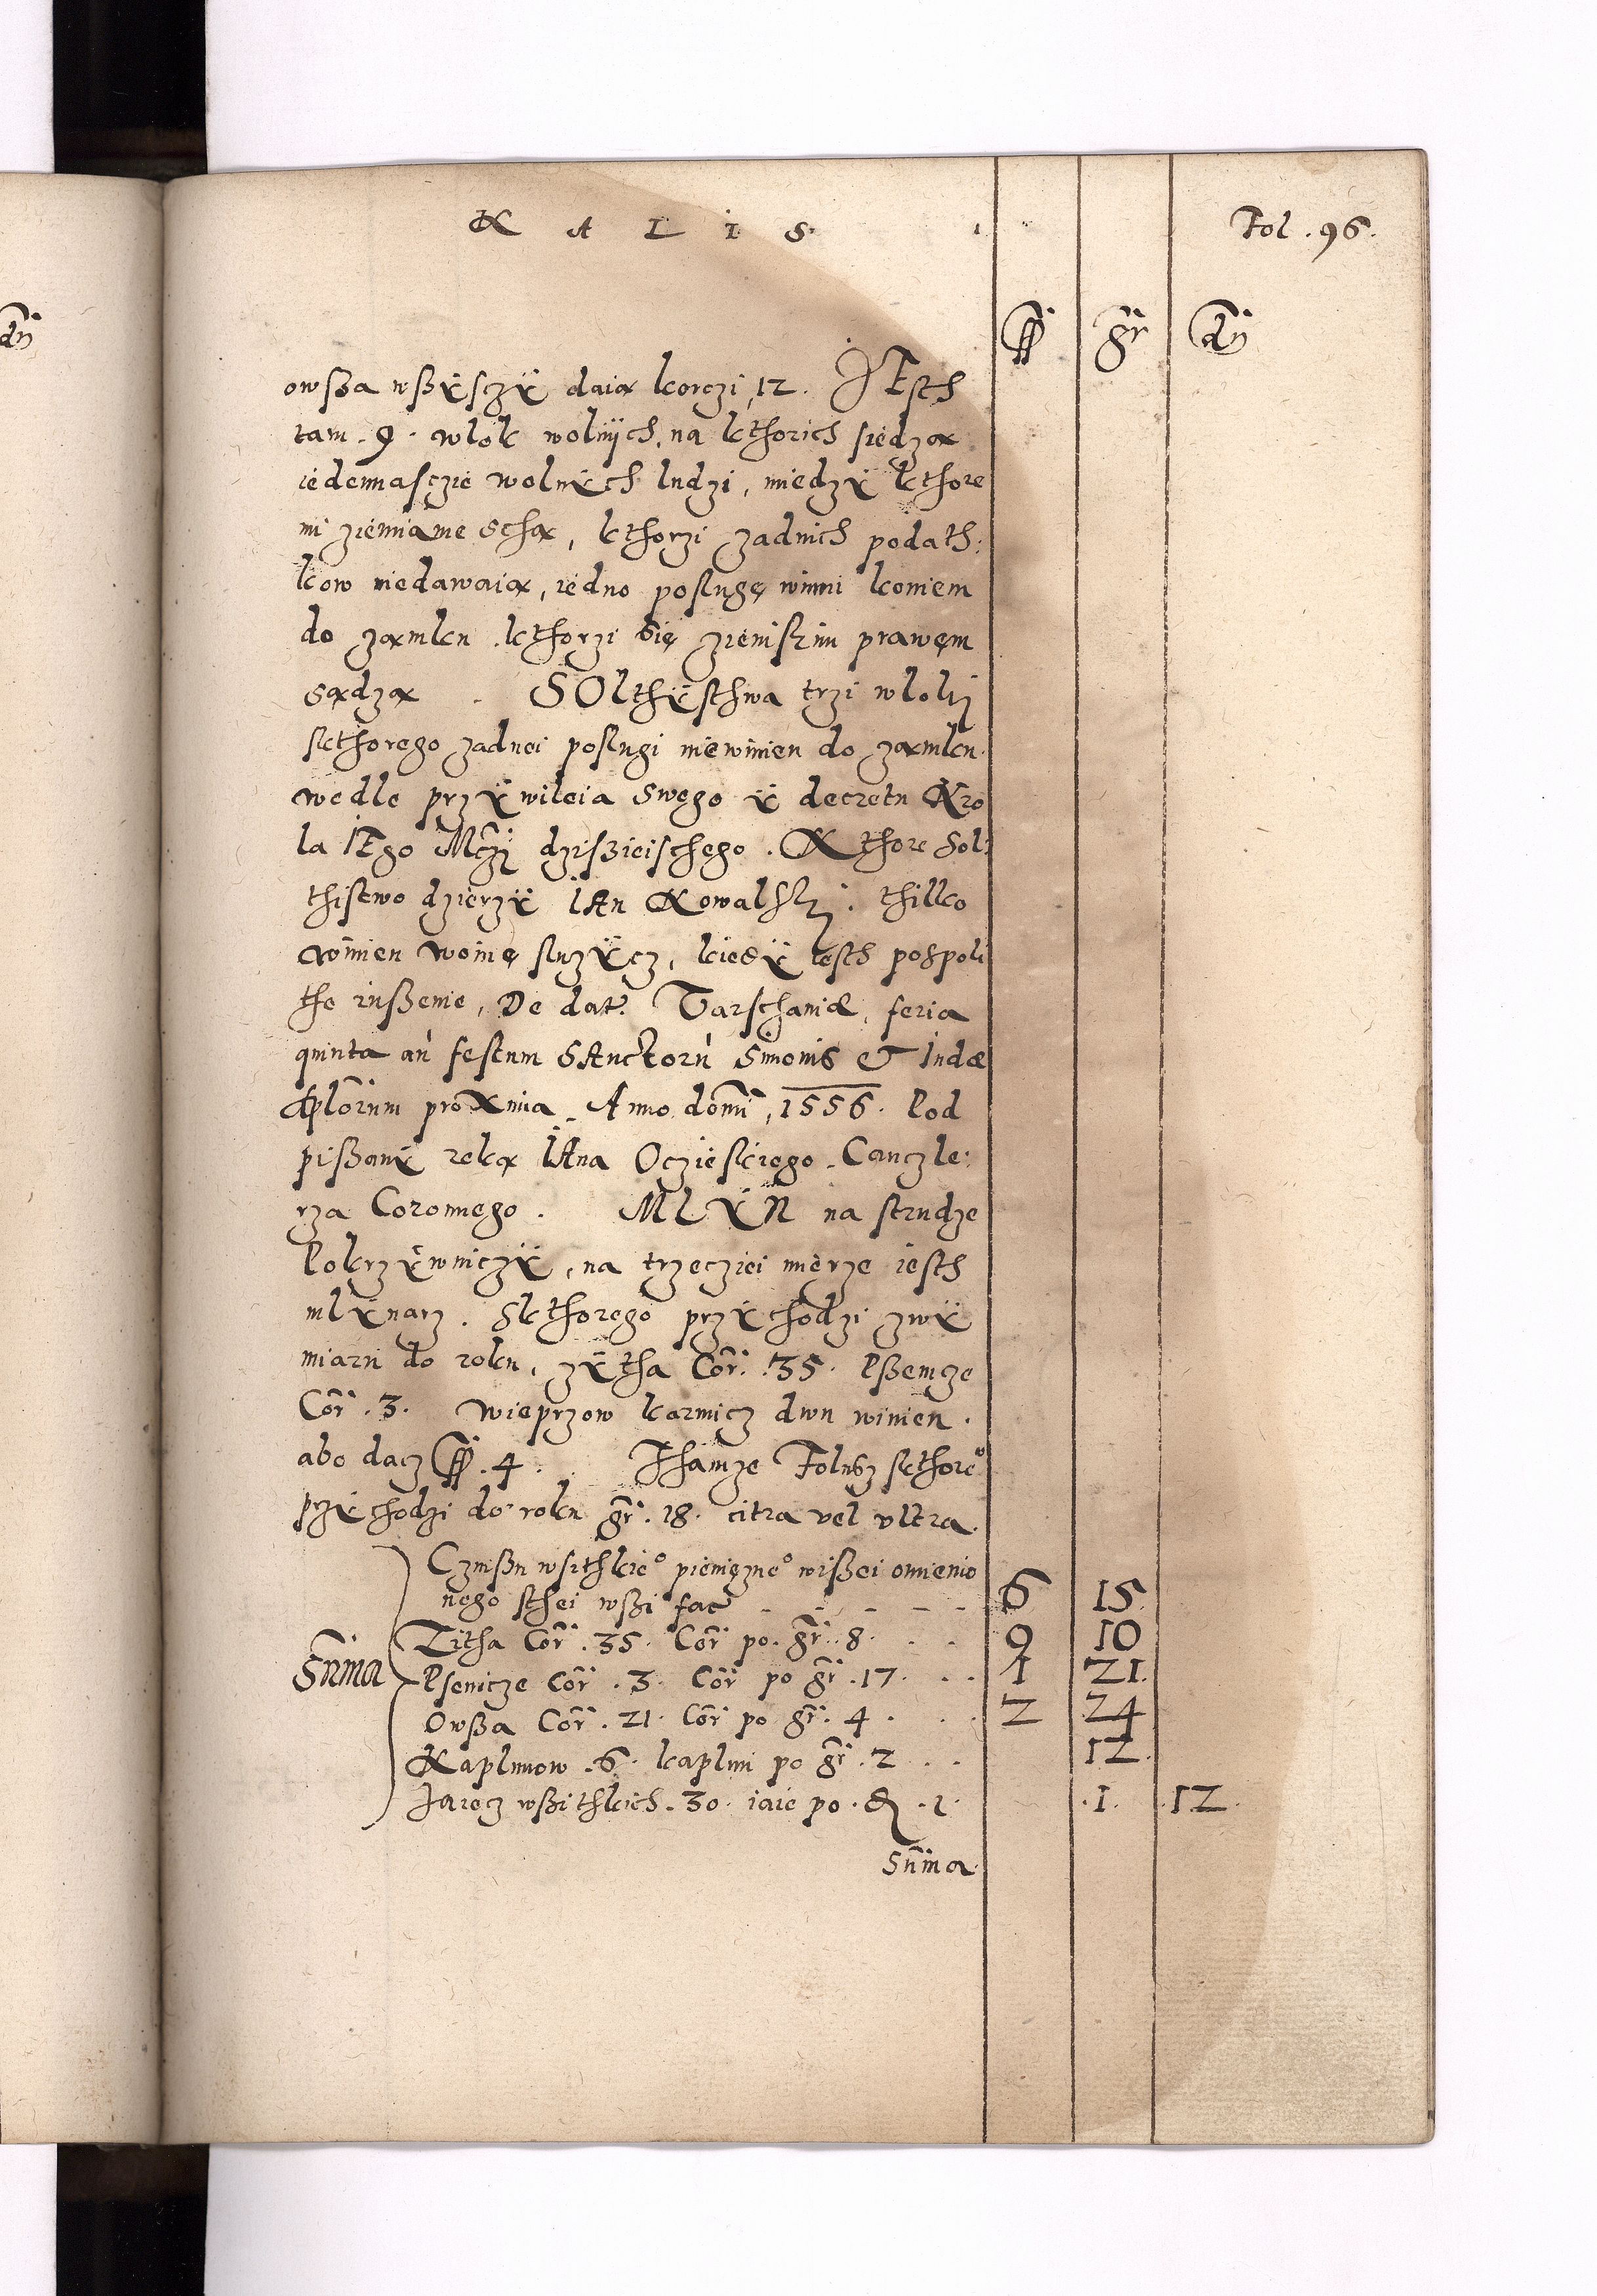 KALIS
Fol . 96.
dn̄
ff gr̄ dn̄
owßa wßÿsczÿ daią korczi, 12. IEsth
tam . 9 . wlok wolnÿch, na kthorich siedzą
iedennasczie wolnÿch ludzi, miedzÿ kthore
mi ziemianie sthą, kthorzi zadnich podath:
kow niedawaią, iedno poslugę winni koniem
do zamku . kthorzi Się ziemskim prawem
sądzą . SOlthÿsthwa trzi wloki
skthorego zadnei poslugi niewinien do zamku.
wedle przÿwileia Swego ÿ decretu Kro
la IEgo Mczi dzisßieischego . Kthore Sol:
thistwo dzierzÿ IAn Kowalski . thilko
winien woinę sluzÿcz, kiedÿ iesth pospoli
the rußenie, De dat. Varschaniæ, feria
quinta an̄ festum SAnctorū Simonis et Iudæ
Aplōrum proxima . Anno domī, 1556. Pod
pißanÿ reką IAna Oczieskiego . Canczle:
rza Coronnego . MLYN na strudze
Pokrzÿwniczÿ, na trzecziei mierze iesth
mlÿnarz . Skthorego przÿchodzi zwÿ
miaru do roku, zÿtha Cor̄ . 35 . Pßenicze
Cor̄ . 3 . Wieprzow karmicz dwu winien .
abo dacz ff . 4 . Thamze Folusz skthore°
przÿchodzi do roku gr̄ . 18 . citra vel vltra.
Czinßu wsithkie° pienięzne° wißei omienio
nego sthei wßi fac̄ 6 15
Zitha Cor̄ . 35 . Cor̄ po . gr̄ . 8 . 9 10
Sūma Psenicze Cor̄ . 3 . Cor̄ po gr̄ . 17 . 1 21.
Owßa Cor̄ . 21 . Cor̄ po gr̄ . 4 . 2 24
Kaplunow . 6 . kaplun po gr̄ . 2 . 12.
Jaiecz wßithkich . 30 . iaie po . d . 1 . .1. .12.
Sūma